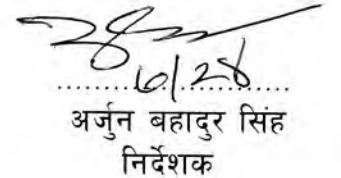 6/28
अर्जुन बहादुर सिंह
निर्देशक